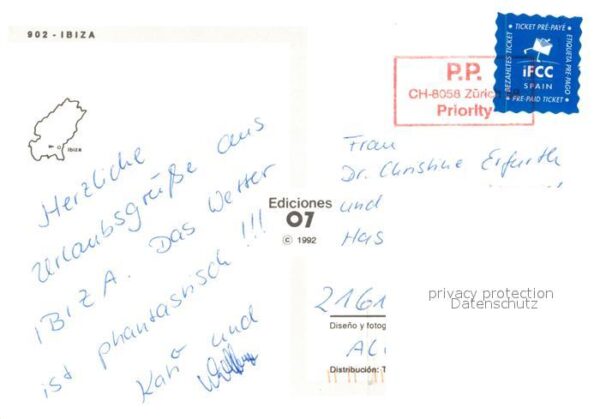 902 - IBIZA
Ibiza
Herzliche
Urlaubsgrüße aus
IBIZA. Das Wetter
ist phantastisch !!!
Kati und
Ediciones
07
© 1992
P.P.
CH-8058 Zürich
Priority
TICKET PRÉ-PAYÉ
BEZAHLTES TICKET
ETIQUETA PRE-PAGO
iFCC
SPAIN
PRE-PAID TICKET
Frau
Dr. Christine Erfurth
und
Has
2161
Diseño y fotog
Distribución: T
privacy protection
Datenschutz